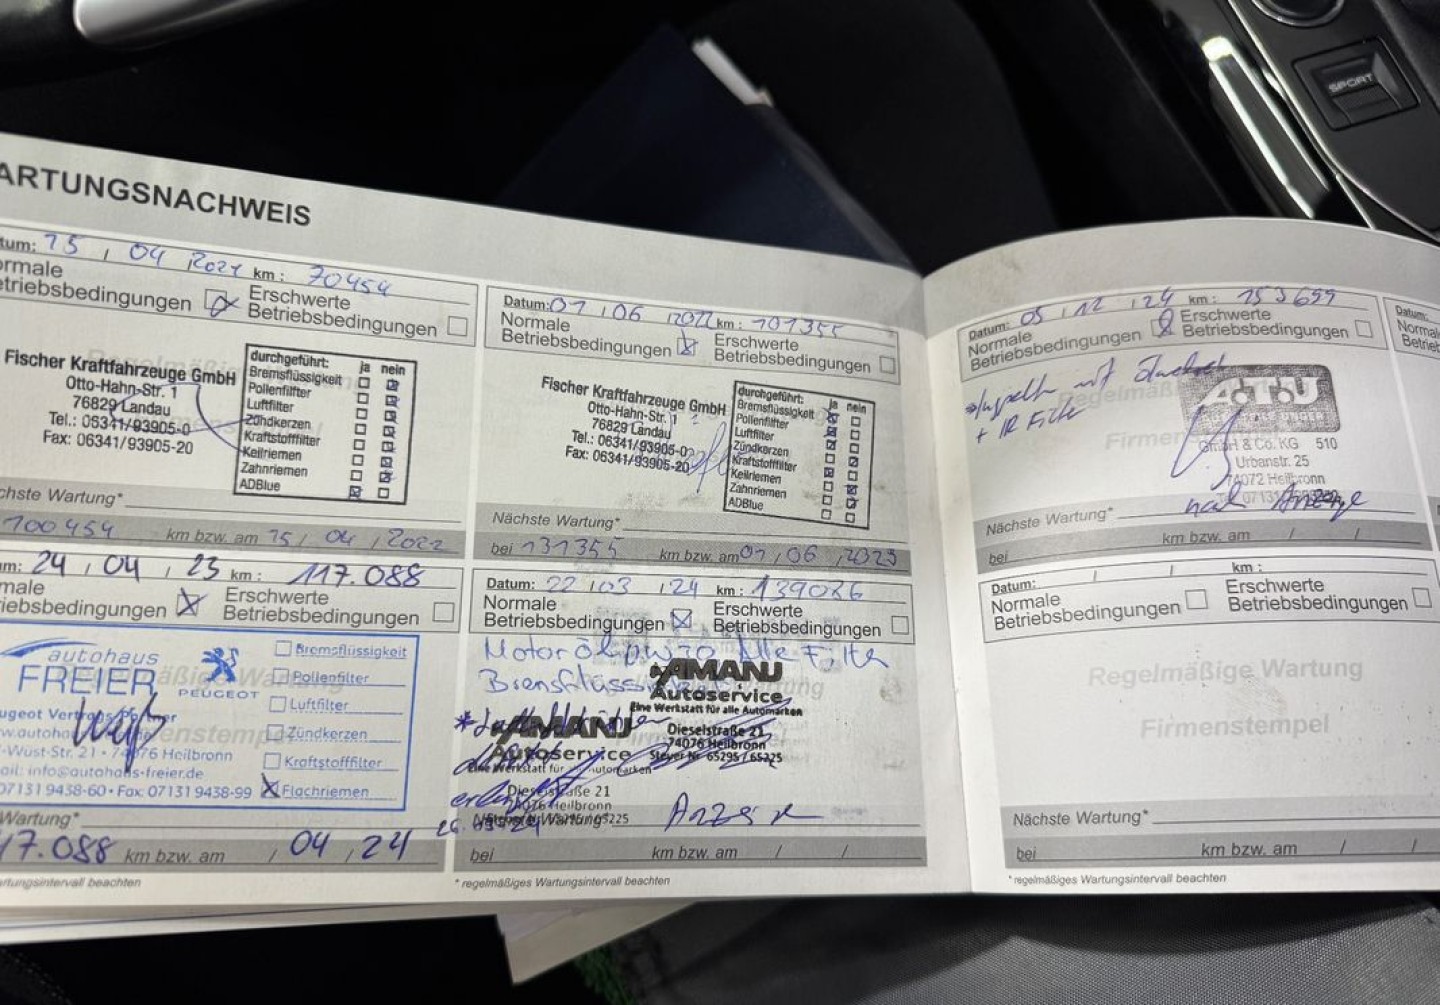 SPORT
ARTUNGSNACHWEIS
tum: 15 / 04 / 2021 km: 70454
ormale
etriebsbedingungen
Erschwerte
Betriebsbedingungen
Fischer Kraftfahrzeuge GmbH
Otto-Hahn-Str. 1
76829 Landau
Tel.: 06341/93905-0
Fax: 06341/93905-20
durchgeführt: ja nein
Bremsflüssigkeit
Pollenfilter
Luftfilter
Zündkerzen
Kraftstofffilter
Keilriemen
Zahnriemen
ADBlue
chste Wartung*
100454 km bzw. am 15 / 04 / 2022
Datum: 01 / 06 / 2022 km: 101355
Normale
Betriebsbedingungen
Erschwerte
Betriebsbedingungen
Fischer Kraftfahrzeuge GmbH
Otto-Hahn-Str. 1
76829 Landau
Tel.: 06341/93905-0
Fax: 06341/93905-20
durchgeführt: ja nein
Bremsflüssigkeit
Pollenfilter
Luftfilter
Zündkerzen
Kraftstofffilter
Keilriemen
Zahnriemen
ADBlue
Nächste Wartung*
bei 131355 km bzw. am 01 / 06 / 2023
um: 24 / 04 / 23 km: 117.088
male
riebsbedingungen
Erschwerte
Betriebsbedingungen
autohaus
FREIER
PEUGEOT
ugeot Vertragspartner
-Wüst-Str. 21 • 74076 Heilbronn
ail: info@autohaus-freier.de
07131 9438-60 • Fax: 07131 9438-99
Bremsflüssigkeit
Pollenfilter
Luftfilter
Zündkerzen
Kraftstofffilter
Flachriemen
Wartung*
47.088 km bzw. am / 04 / 24
artungsintervall beachten
Datum: 22 / 03 / 24 km: 139086
Normale
Betriebsbedingungen
Erschwerte
Betriebsbedingungen
Motoröl Alle Filter
AMANJ
Autoservice
Eine Werkstatt für alle Automarken
Dieselstraße 21
74076 Heilbronn
Steuer Nr 65295/65225
AMANJ
Autoservice
Dieselstraße 21
74076 Heilbronn
Nächste Wartung*
bei km bzw. am / /
* regelmäßiges Wartungsintervall beachten
Datum: 05 / 12 / 24 km: 153699
Normale
Betriebsbedingungen
Erschwerte
Betriebsbedingungen
A.T.U
GmbH & Co. KG 510
Urbanstr. 25
74072 Heilbronn
nach Anzeige
Nächste Wartung*
bei km bzw. am / /
Datum: / / km:
Normale
Betriebsbedingungen
Erschwerte
Betriebsbedingungen
Regelmäßige Wartung
Firmenstempel
Nächste Wartung*
bei km bzw. am / /
* regelmäßiges Wartungsintervall beachten
Datum:
Norma
Betrieb